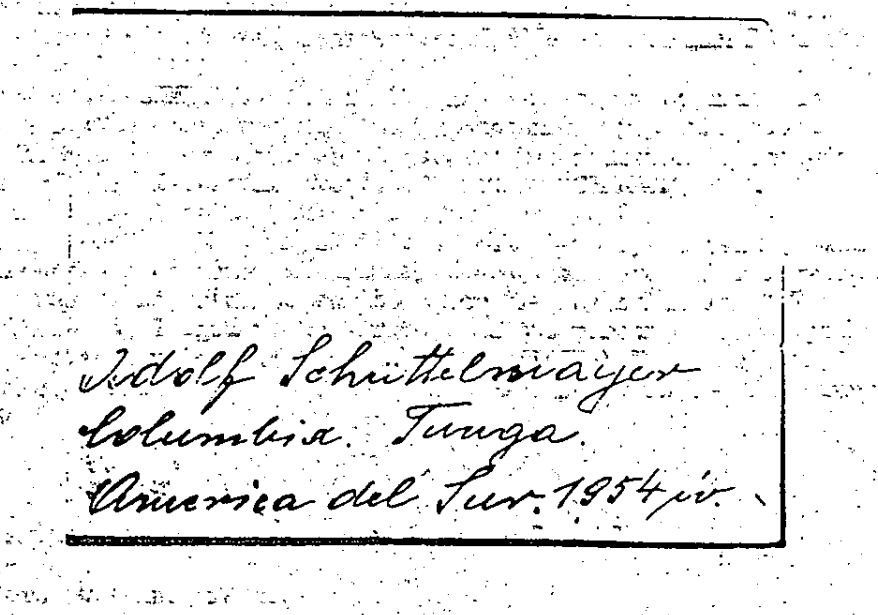 Adolf Schüttelmayer
Columbia. Tunga.
America del Sur. 1954